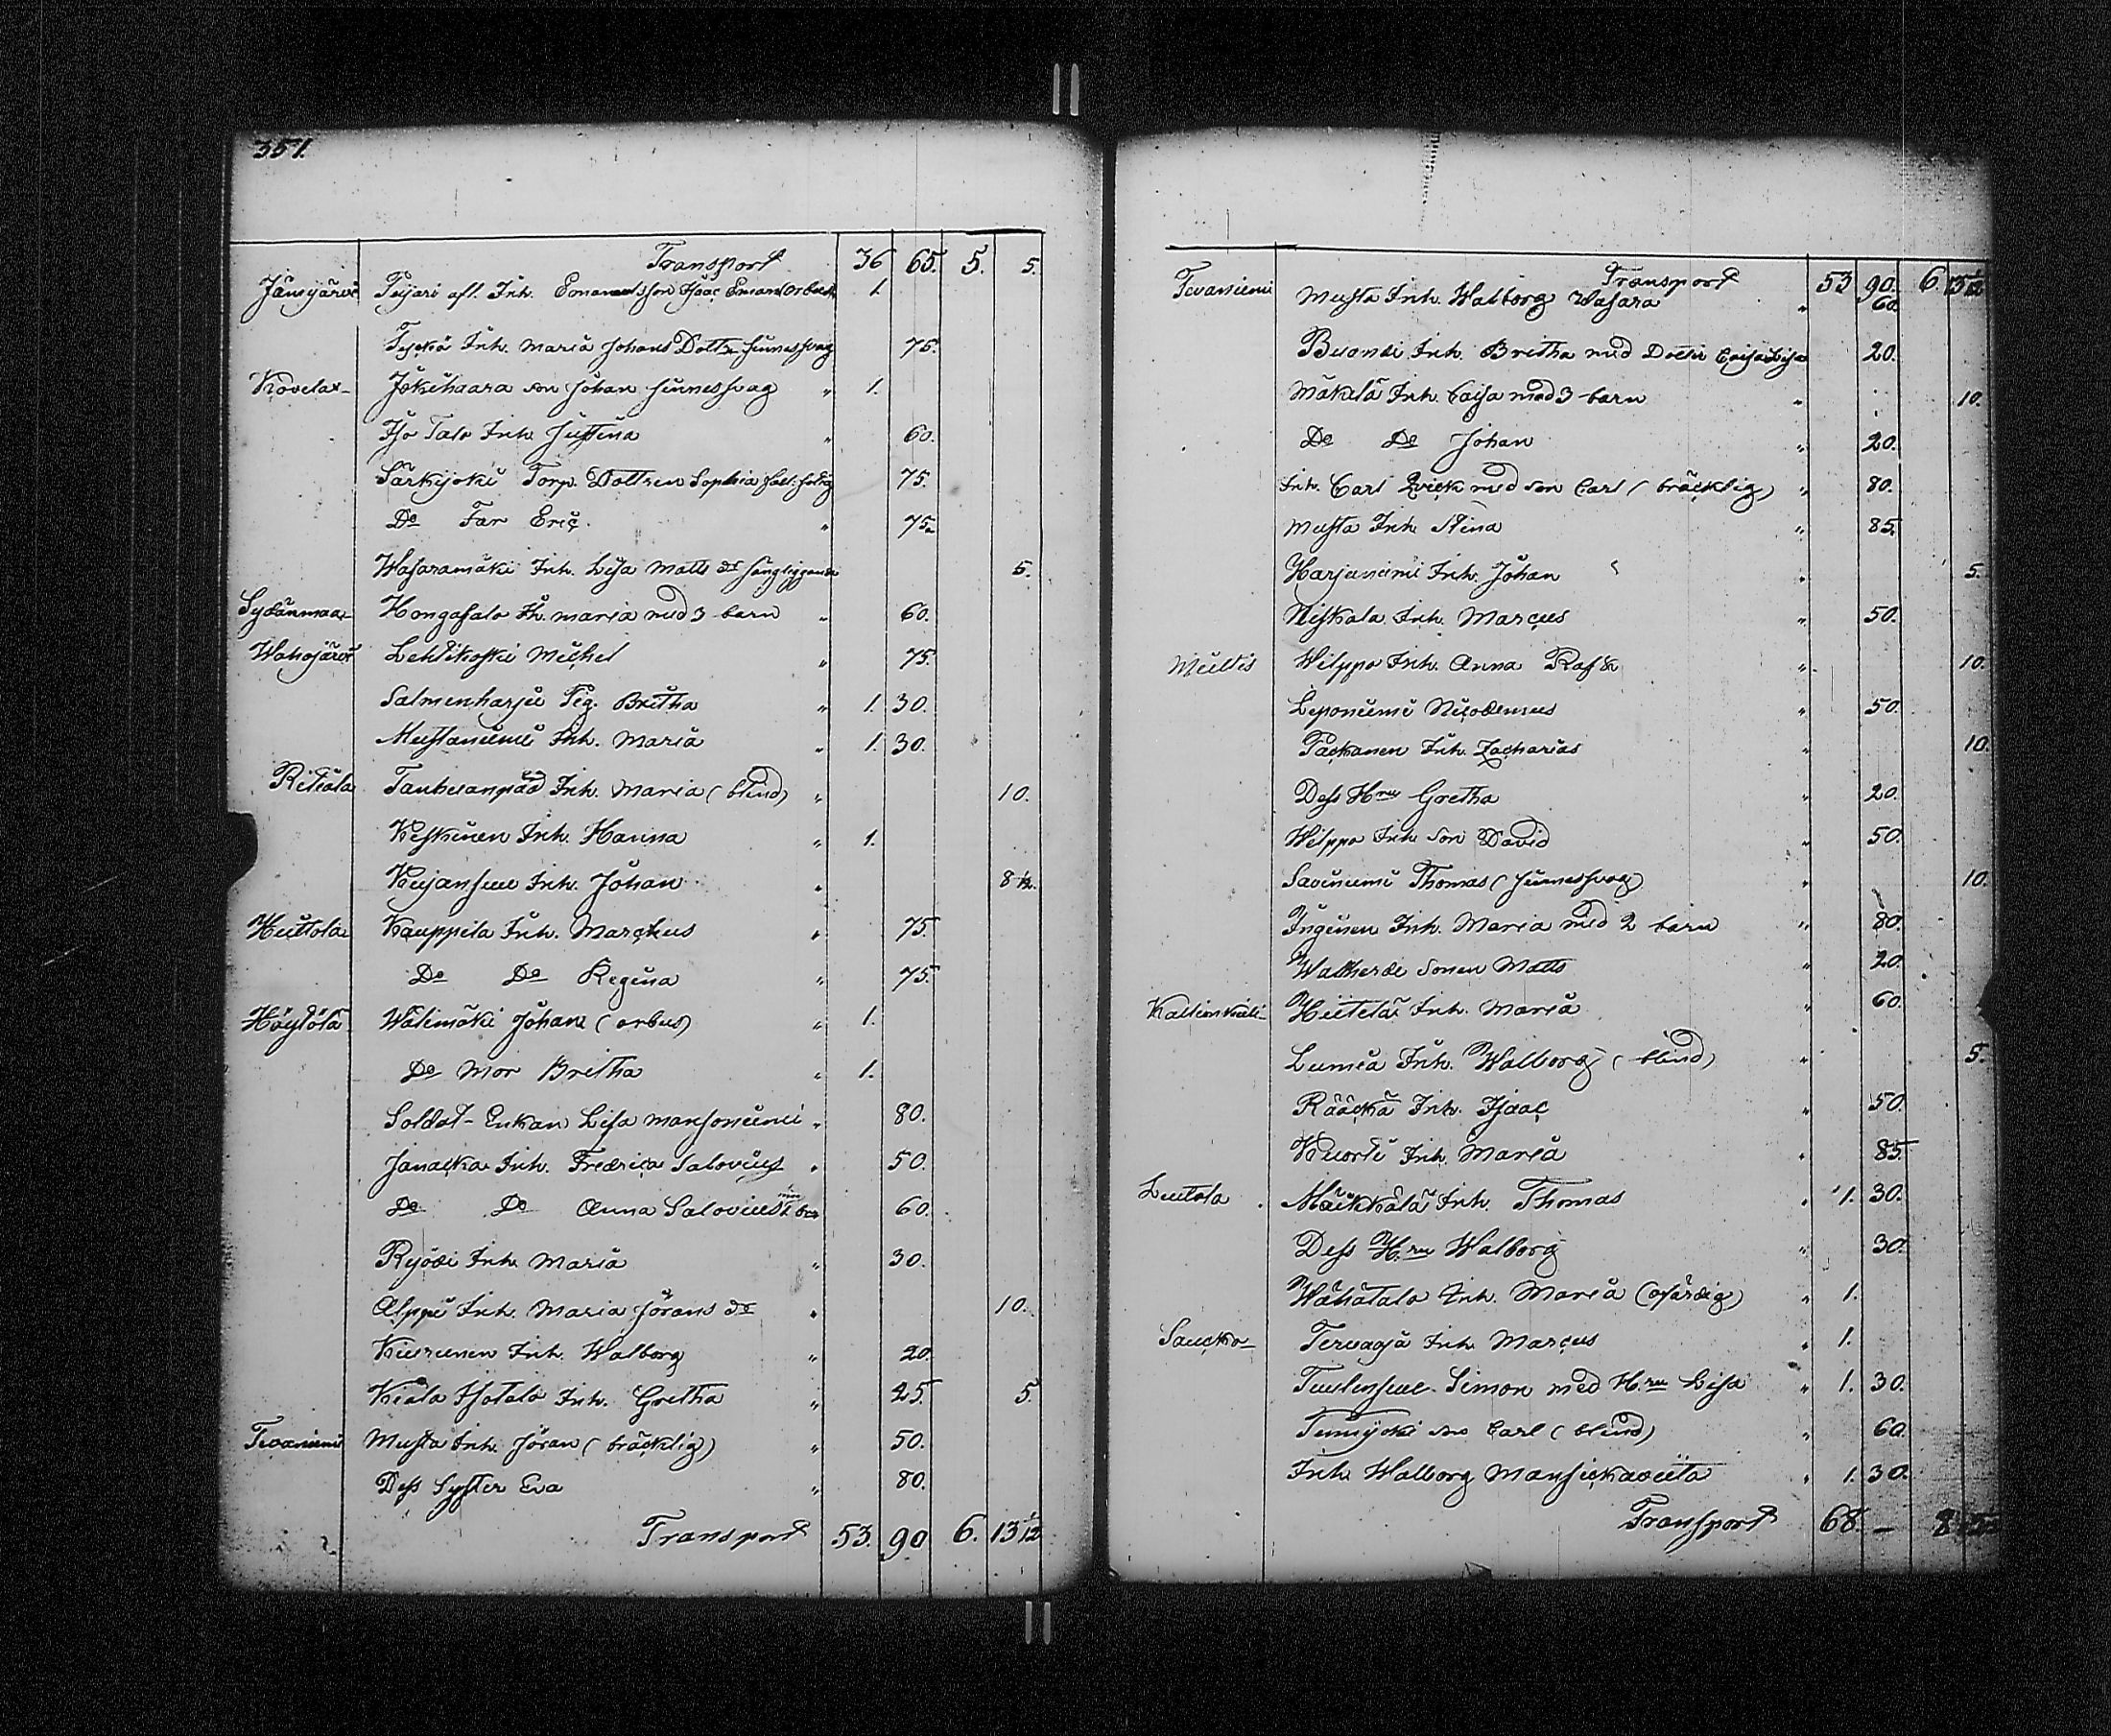 351.
Transport 36 65. 5. 5.
Jämijärvi Pejari afl. Inh. Emanuelsson Isaac Emanl orbus 1.
Inh. Maria Johans Dottr sinnessvag 75.
Kovelax Jokihaara son Johan sinnessvag " 1.
Iso Talo Inh. Justina " 60.
Särkijoki Torp. Dottren Sophia 75.
Do Far Eric " 75.
Wasaramäki Inh. Lisa Matts dr sängliggande 5.
Sydänmaa Hongasalo Ih. maria med 3 barn " 60.
Wahojärvi Lehtikoski Michel " 75.
Salmenharju Pig. Britha " 1. 30.
Mustaniemi Inh. Maria " 1. 30.
Ritiala Inh. Maria (blind) " 10.
Keskinen Inh. Hanna " 1.
Kujansuu Inh. Johan " 8 1/2.
Heittola Kauppila Inh. Marckus " 75.
Do Do Regina " 75.
Höytölä Wälimäki Johan (orbus) " 1.
Do Mor Britha " 1.
Soldat-Enkan Lisa Mansoniemi " 80.
Janacka Inh. Fredrica Salovius " 50.
Do Do Anna Salovius 60.
Ryödi Inh. Maria " 30.
Alppi Inh. Maria Jörans dr " 10.
Kiurunen Inh. Walborg " 20.
Kiala Isotalo Inh. Gretha " 25. 5.
Tevaniemi Musta Inh. Jöran (bräcklig) " 50.
Dess Syster Eva " 80.
Transport 53. 90 6. 13 1/2
Tevaniemi Transport 53 90. 6.
Musta Inh. Walborg Wasara " 60.
Inh. Britha med Dottr Caisa Lisa 20.
Mäkelä Inh. Caisa med 3 barn " 10.
Do Do Johan " 20.
Inh. Carl Qvick med son Carl (bräcklig) " 80.
Musta Inh. Stina " 85.
Harjuniemi Inh. Johan " 5.
Niskala Inh. Marcus " 50.
Miettis Wilppo Inh. Anna Rask " 10.
Leponiemi Nicodemus " 50.
Packanen Inh. Zacharias " 10.
Dess Hru Gretha " 20.
Wilppo Inh. Son David " 50.
Saviniemi Thomas (sinnessvag) " 10.
Inginen Inh. Maria med 2 barn " 80.
Sonen Matts " 20.
Hiitelä Inh. Maria " 60.
Lumia Inh. Walborg (blind) " 5.
Rääckä Inh. Isaac " 50.
Kuorti Inh. Maria " 85.
Luttola Mäckkälä Inh. Thomas " 1. 30.
Dess Hru Walborg " 30.
Wähätalo Inh. Maria (ofärdig) " 1.
Sauckо Tervaoja Inh. Marcus " 1.
Tuulensuu Simon med Hru Lisa " 1. 30.
son Carl (blind) " 60.
Inh. Walborg Mansickaviita " 1. 30.
Transport 68. — 8